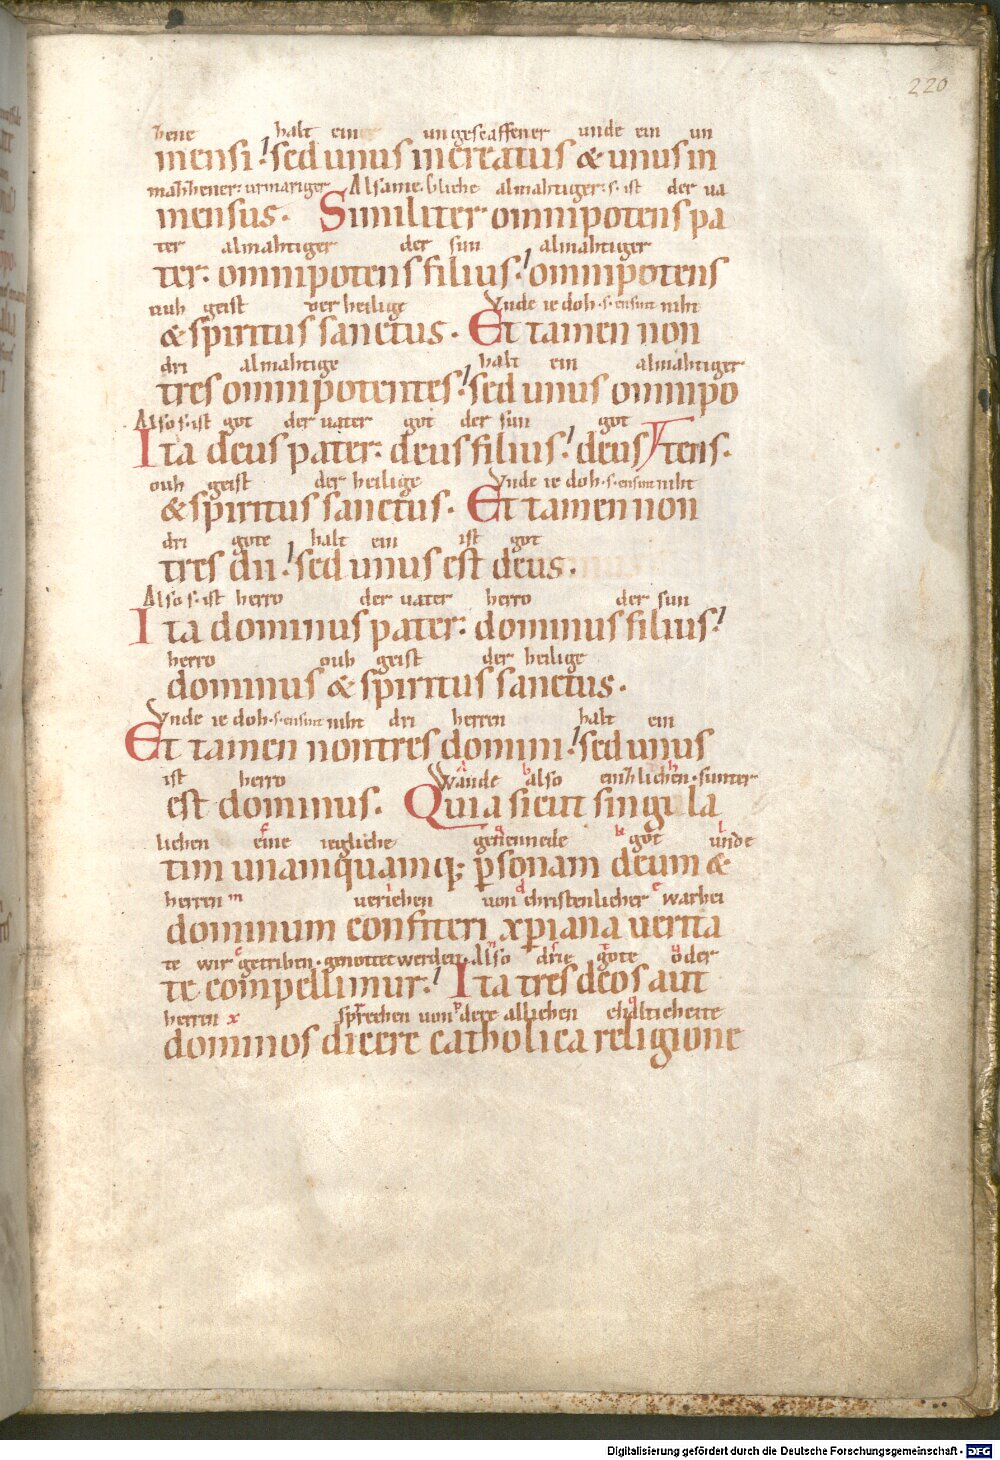 220
hene halt ein ungescaffener unde ein un
mensi. sed unus increatus & unus in
mahhener: urmariger Alsame. s. liche almahtiger. s. ist der ua
mensus. Similiter omnipotens pa
ter almahtiger der sun almahtiger
ter: omnipotens filius. omnipotens
ouh geist der heilige Unde ie doh. s. ensint niht
& spiritus sanctus. Et tamen non
dri almahtige halt ein almahtiger
tres omnipotentes. sed unus omnipo
Also s. ist got der uater got der sun got
Ita deus pater: deus filius. deus tens.
ouh geist der heilige Unde ie doh. s. ensint niht
& spiritus sanctus. Et tamen non
dri gote halt ein ist got
tres dii. sed unus est deus.
Also s. ist herro der uater herro der sun
Ita dominus pater: dominus filius.
herro ouh geist der heilige
dominus & spiritus sanctus.
Unde ie doh. s. ensint niht dri herren halt ein
Et tamen non tres domini. sed unus
ist herro Wande also einhlichen. sunter
est dominus. Quia sicut singula
lichen eine iegliche genennede got unde
tim unamquamq; psonam deum &
herren m veriehen von christenlicher warhei
dominum confiteri xpiana uerita
te wir getriben. genottet werden. Also drie gote oder
te compellimur. Ita tres deos aut
herren x sprechen von dere allichen ehalticheite
dominos dicere catholica religione
Digitalisierung gefördert durch die Deutsche Forschungsgemeinschaft - DFG